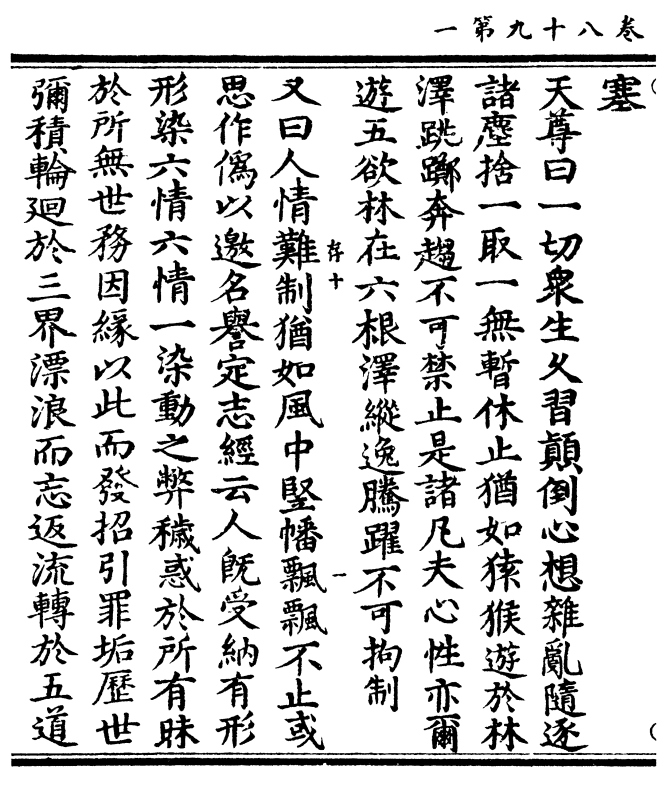 一第九十八卷
塞
天尊曰一切衆生久習顛倒心想雜亂隨逐
諸塵捨一取一無暫休止猶如猿猴遊於林
澤跳躑奔趨不可禁止是諸凡夫心性亦爾
遊五欲林在六根澤縱逸騰躍不可拘制
存十
一
又曰人情難制猶如風中竪幡飄飄不止或
思作僞以邀名譽定志經云人旣受納有形
形染六情六情一染動之弊穢惑於所有昧
於所無世務因緣以此而發招引罪垢歷世
彌積輪廻於三界漂浪而忘返流轉於五道